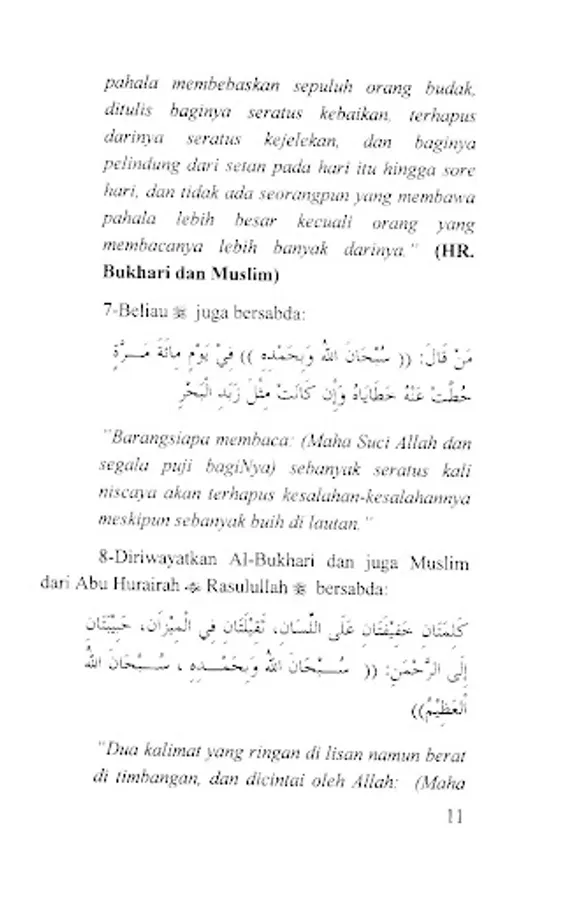 pahala membebaskan sepuluh orang budak,
ditulis baginya seratus kebaikan, terhapus
darinya seratus kejelekan, dan baginya
pelindung dari setan pada hari itu hingga sore
hari, dan tidak ada seorangpun yang membawa
pahala lebih besar kecuali orang yang
membacanya lebih banyak darinya." (HR.
Bukhari dan Muslim)
7-Beliau ﷺ juga bersabda:
مَنْ قَالَ: (( سُبْحَانَ اللهُ وَبِحَمْدِهِ )) فِيْ يَوْمٍ مِائَةَ مَـــرَّةٍ
حُطَّتْ عَنْهُ خَطَايَاهُ وَإِن كَانَتْ مِثْلَ زَبَدِ الْبَحْرِ
"Barangsiapa membaca: (Maha Suci Allah dan
segala puji bagiNya) sebanyak seratus kali
niscaya akan terhapus kesalahan-kesalahannya
meskipun sebanyak buih di lautan."
8-Diriwayatkan Al-Bukhari dan juga Muslim
dari Abu Hurairah Rasulullah ﷺ bersabda:
كَلِمَتَانِ خَفِيْفَتَانِ عَلَى اللِّسَانِ، ثَقِيْلَتَانِ فِي الْمِيْزَانِ، حَبِيْبَتَانِ
إِلَى الرَّحْمَنِ: (( سُـــبْحَانَ اللهُ وَبِحَمْـــدِهِ ، سُـــبْحَانَ اللهُ
الْعَظِيْمُ))
"Dua kalimat yang ringan di lisan namun berat
di timbangan, dan dicintai oleh Allah: (Maha
11